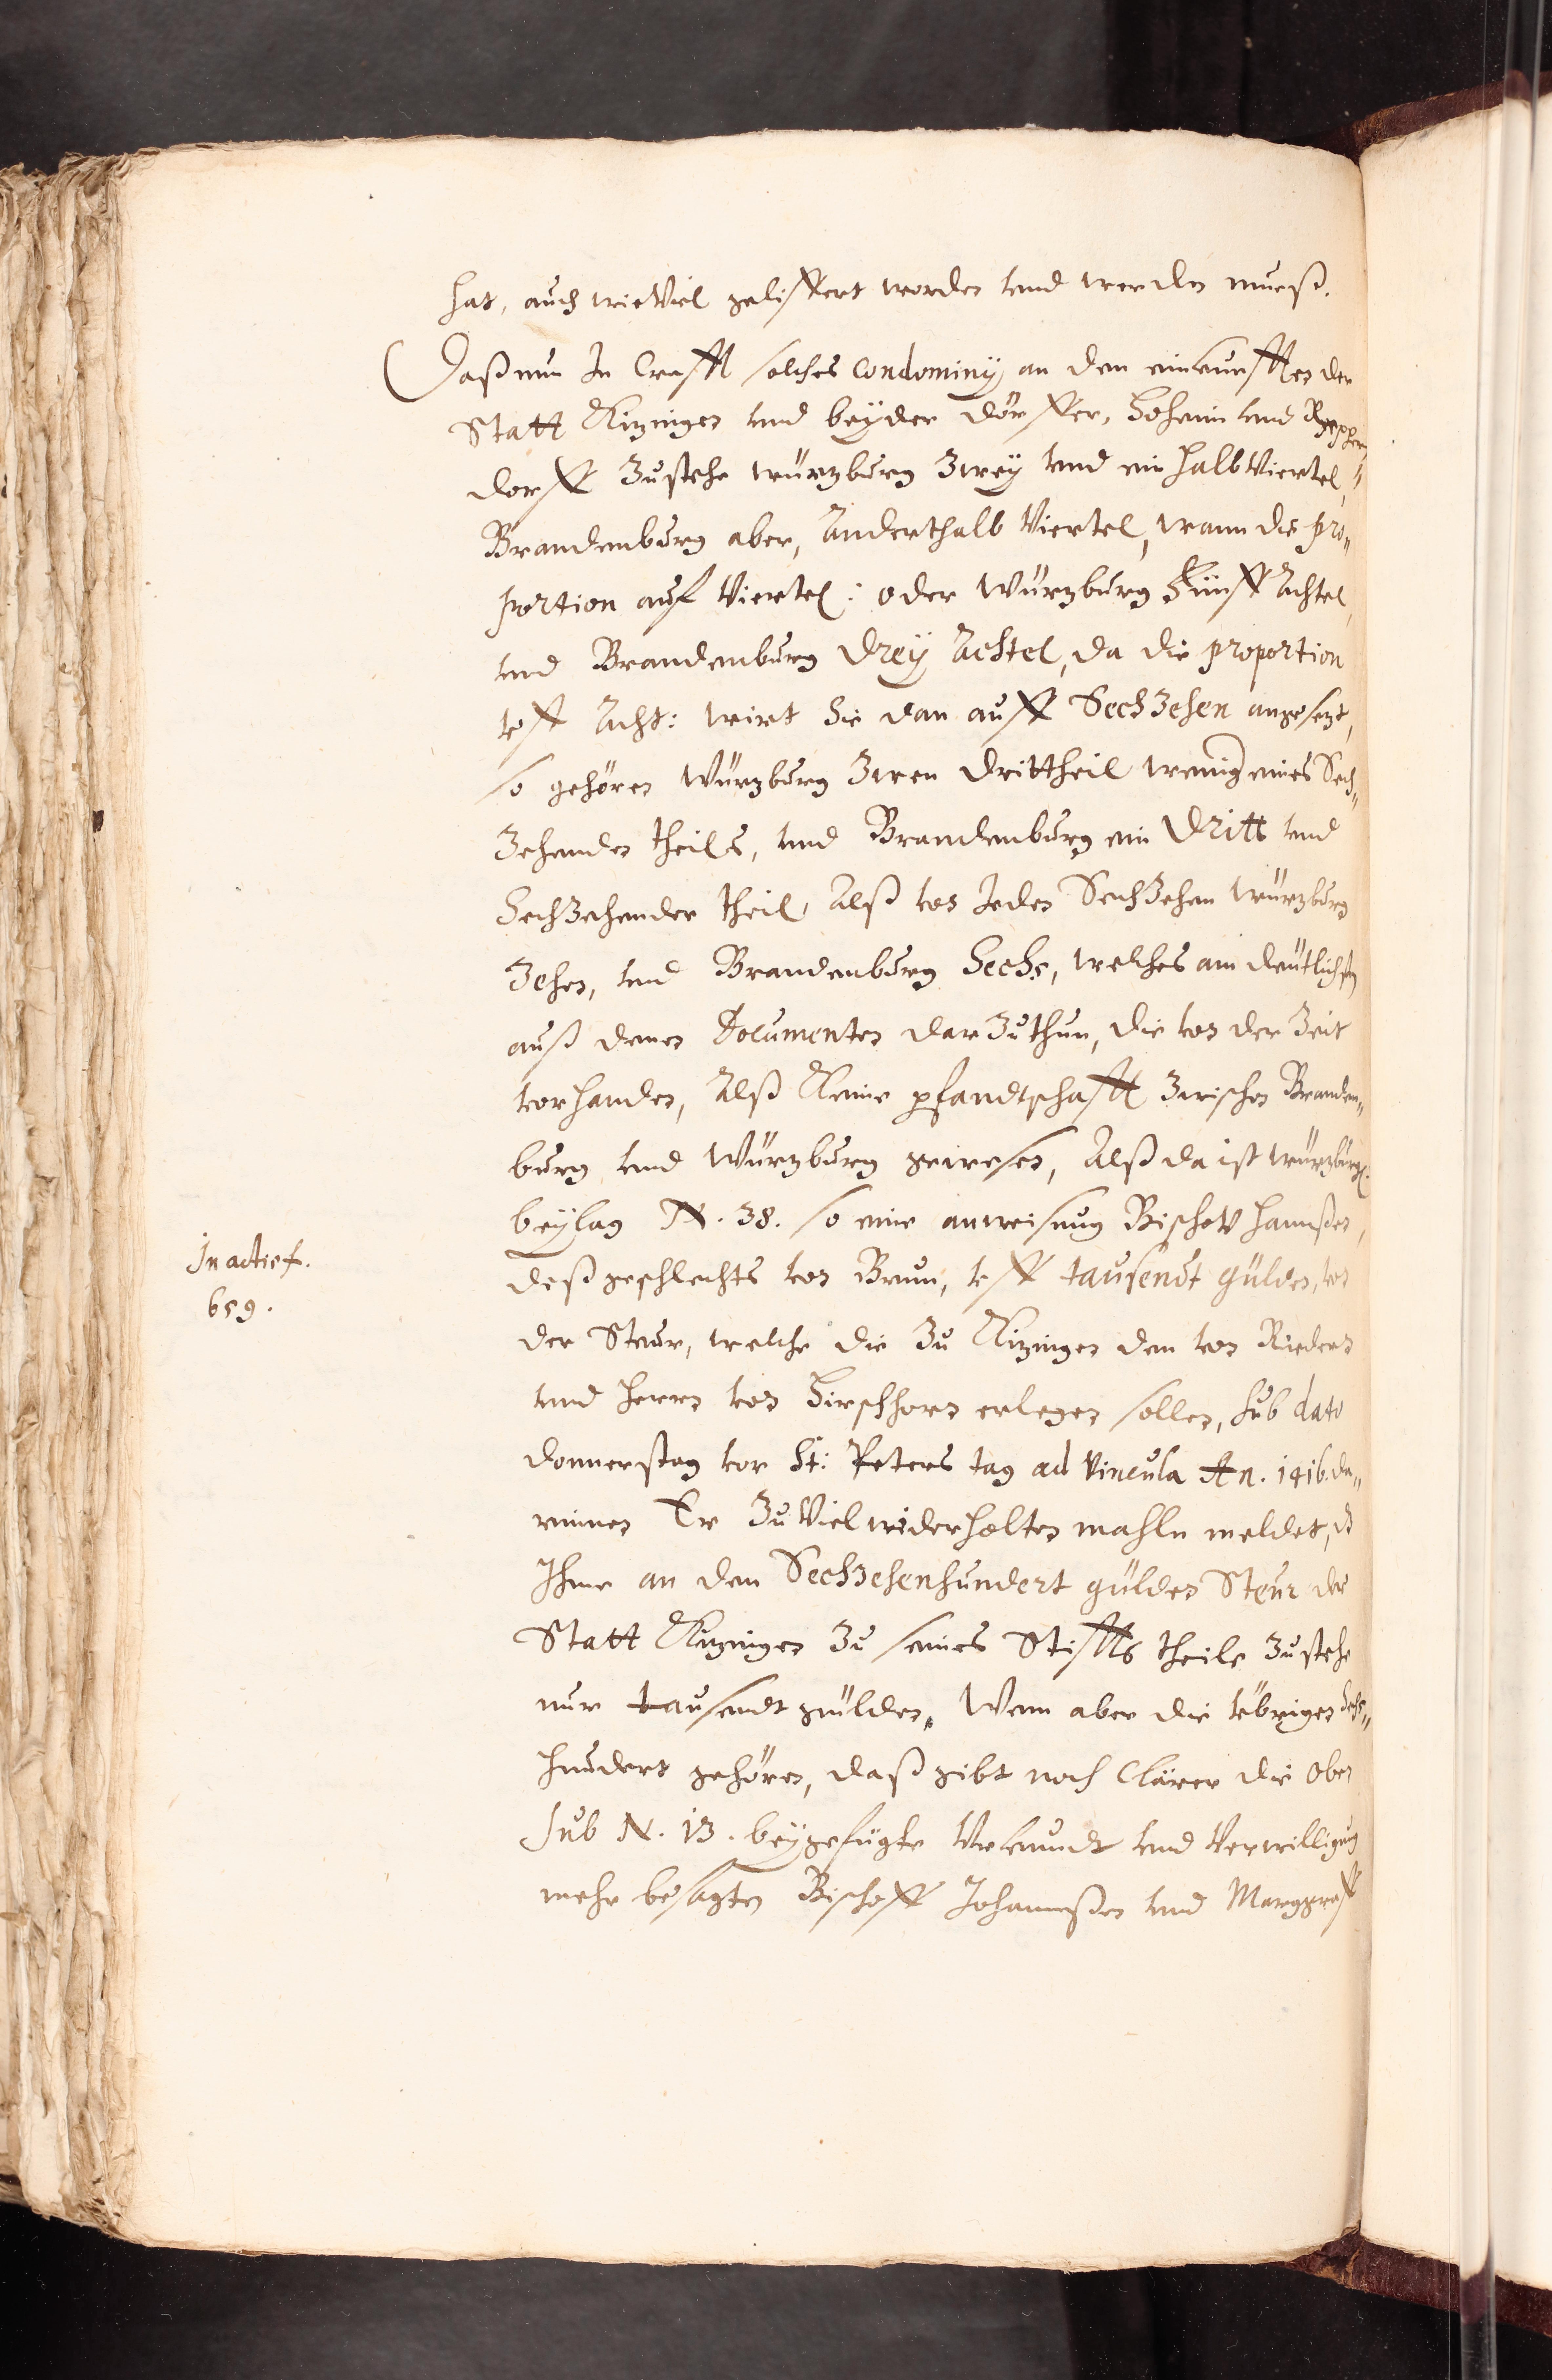 hat, auch wie Viel geliffert worden vnd werden mueß.
Daß nun In Crafft solches Condominÿ an den einkunfften der
Statt Kitzingen vnd beÿder dörffer, Hoheim vnd Repper„
dorff Zustehe würtzburg Zweÿ vnd ein halb Viertel,
Brandenburg aber, Anderthalb Viertel, wann die pro„
portion auf Viertel: oder Würtzburg Fünff Achtel,
vnd Brandenburg Dreÿ Achtel, da die proportion
vff Acht: wirt Sie dan auff SechZehen angesetzt,
so gehören Würtzburg Zwen Drittheil wenig eines Sech„
Zehenden theils, vnd Brandenburg ein Dritt vnd
SechZehender theil, Alß von Jeden SechZehen würtzburg
Zehen, vnd Brandenburg Sechs, welches am deütlichsten
auß denen Documenten dar Zuthun, die von der Zeit
vorhanden, Alß Keine pfandtschafft Zwischen Branden„
burg vnd Würtzburg gewesen, Alß da ist würtzburg.
beÿlag N. 38. so eine anweisung BischoV Hannßen,
deß geschlechts von Brun, vff tausendt gülden, von
der Steur, welche die Zu Kitzingen den von Riedern
vnd Herrn von Hirschhorn erlegen sollen, sub dato
Donnerstag vor St: Peters tag ad Vincula An. 1416. da„
rinnen Er Zu Viel widerholten mahln meldet, d
Ihme an den SechZehenhundert gülden Steur der
Statt Kitzingen Zu seines Stiffts theile Zustehe
nur tausendt gülden, Wem aber die vbrigen Sechs„
hundert gehören, daß gibt noch Clärer die Oben
sub N. 13. beÿgefügte Vrkundt vnd Verwilligung
mehr besagten Bischoff Johannßen vnd Marggraff
In actis f.
659.